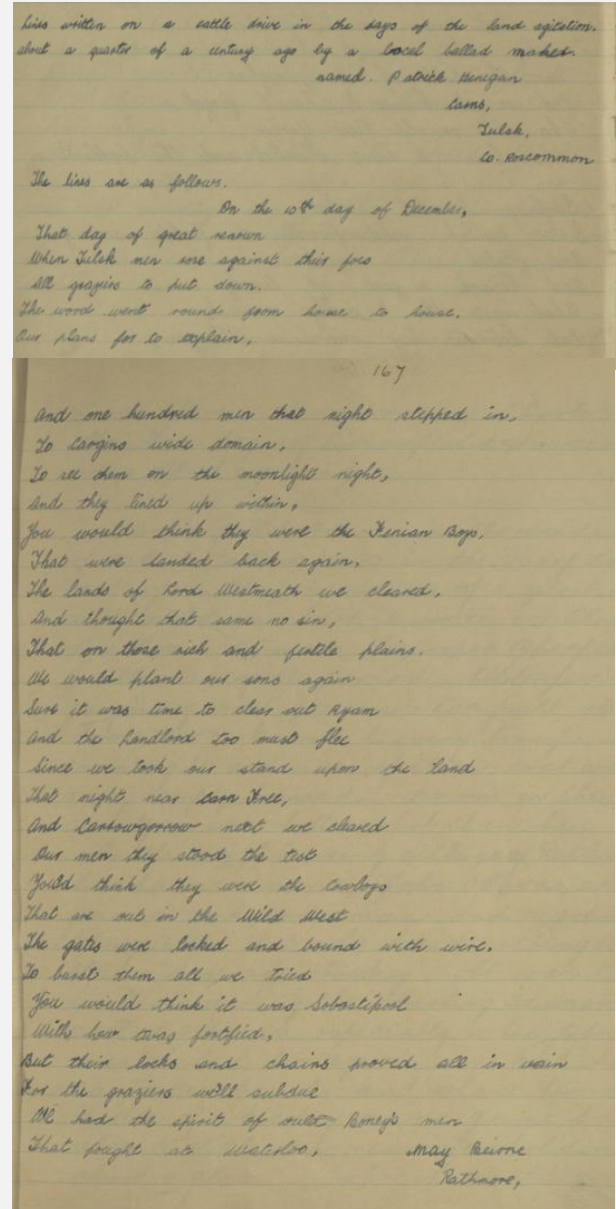 Lines written on a cattle drive in the days of the land agitation.
about a quarter of a century ago by a local ballad maker
named. Patrick Henigan
Cams,
Tulsk,
Co. Roscommon
The lines are as follows.
On the 10th day of December,
That day of great renown
When Tulsk men rose against their foes
All graziers to put down.
The word went round from house to house,
Our plans for to explain,
167
And one hundred men that night stepped in,
To Cargins wide domain,
To see them on the moonlight night,
And they lined up within,
You would think they were the Fenian Boys,
That were landed back again,
The lands of Lord Westmeath we cleared,
And thought that same no sin,
That on those rich and fertile plains.
We would plant our sons again
Sure it was time to clear out Ryam
And the Landlord too must flee
Since we took our stand upon the land
That night near Carn Free,
And Carrowgorrow next we cleared
Our men they stood the test
You'd think they were the Cowboys
That are out in the Wild West
The gates were locked and bound with wire,
To barst them all we tried
You would think it was Sobastipool
With how twas fortified,
But their locks and chains proved all in vain
For the graziers we'll subdue
We had the spirit of ould Boney's men
That fought at Waterloo,
May Beirne
Rathmore,